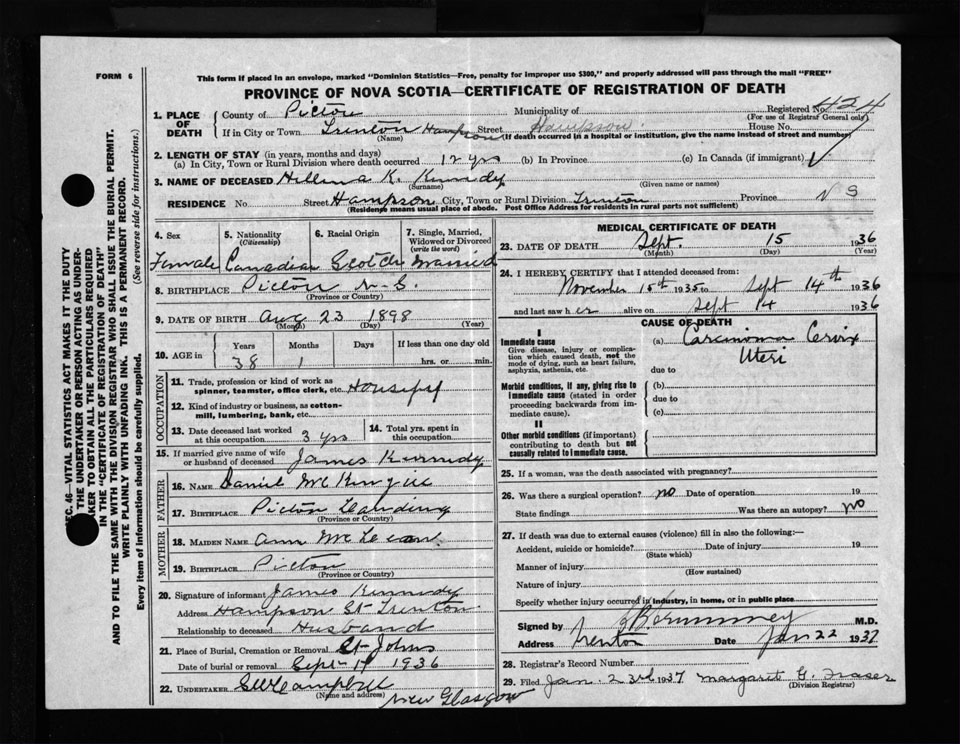 FORM 6
This form if placed in an envelope, marked "Dominion Statistics—Free, penalty for improper use $300," and properly addressed will pass through the mail "FREE"
PROVINCE OF NOVA SCOTIA—CERTIFICATE OF REGISTRATION OF DEATH
SEC. 46—VITAL STATISTICS ACT MAKES IT THE DUTY
THE UNDERTAKER OR PERSON ACTING AS UNDER-
TAKER TO OBTAIN ALL THE PARTICULARS REQUIRED
IN THE "CERTIFICATE OF REGISTRATION OF DEATH"
AND TO FILE THE SAME WITH THE DIVISION REGISTRAR WHO SHALL ISSUE THE BURIAL PERMIT.
WRITE PLAINLY WITH UNFADING INK. THIS IS A PERMANENT RECORD.
Every item of information should be carefully supplied. (See reverse side for instructions.)
1. PLACE OF DEATH County of Pictou Municipality of Registered No. 424
(For use of Registrar General only)
If in City or Town Trenton Hampson Street Hampson House No.
(Name) (If death occurred in a hospital or institution, give the name instead of street and number)
2. LENGTH OF STAY (in years, months and days)
(a) In City, Town or Rural Division where death occurred 12 yrs (b) In Province (c) In Canada (if immigrant)
3. NAME OF DECEASED Hellena K. Kennedy
(Surname) (Given name or names)
RESIDENCE No Street Hampson City, Town or Rural Division Trenton Province N S
(Residence means usual place of abode. Post Office Address for residents in rural parts not sufficient)
4. Sex 5. Nationality (Citizenship) 6. Racial Origin 7. Single, Married, Widowed or Divorced (write the word)
Female Canadian Scotch Married
8. BIRTHPLACE Pictou N.S.
(Province or Country)
9. DATE OF BIRTH Aug 23 1898
(Month) (Day) (Year)
10. AGE in Years Months Days If less than one day old
38 1 hrs. or min.
OCCUPATION
11. Trade, profession or kind of work as
spinner, teamster, office clerk, etc.
12. Kind of industry or business, as cotton-
mill, lumbering, bank, etc.
13. Date deceased last worked at this occupation 3 yrs 14. Total yrs. spent in this occupation
15. If married give name of wife or husband of deceased James Kennedy
FATHER
16. NAME Daniel
17. BIRTHPLACE Pictou Landing
(Province or Country)
MOTHER
18. MAIDEN NAME Ann McLean
19. BIRTHPLACE Pictou
(Province or Country)
20. Signature of informant James Kennedy
Address Hampson St Trenton
Relationship to deceased Husband
21. Place of Burial, Cremation or Removal St Johns
Date of burial or removal Sept 17 1936
22. UNDERTAKER Campbell
(Name and address) New Glasgow
MEDICAL CERTIFICATE OF DEATH
23. DATE OF DEATH Sept. 15 1936
(Month) (Day) (Year)
24. I HEREBY CERTIFY that I attended deceased from:
November 15th 1935 to Sept 14th 1936
and last saw her alive on Sept 14 1936
CAUSE OF DEATH
I
Immediate cause
Give disease, injury or complica-
tion which caused death, not the
mode of dying, such as heart failure,
asphyxia, asthenia, etc.
(a) Carcinoma Cervix
Uteri
due to
Morbid conditions, if any, giving rise to
immediate cause (stated in order
proceeding backwards from im-
mediate cause).
(b)
due to
(c)
II
Other morbid conditions (if important)
contributing to death but not
causally related to immediate cause.
25. If a woman, was the death associated with pregnancy?
26. Was there a surgical operation? no Date of operation 19
State findings Was there an autopsy? no
27. If death was due to external causes (violence) fill in also the following:—
Accident, suicide or homicide? Date of injury 19
(State which)
Manner of injury
(How sustained)
Nature of injury
Specify whether injury occurred in industry, in home, or in public place
Signed by M.D.
Address Trenton Date Jan 22 1937
28. Registrar's Record Number
29. Filed Jan. 23rd 1937 Margaret G. Fraser
(Division Registrar)